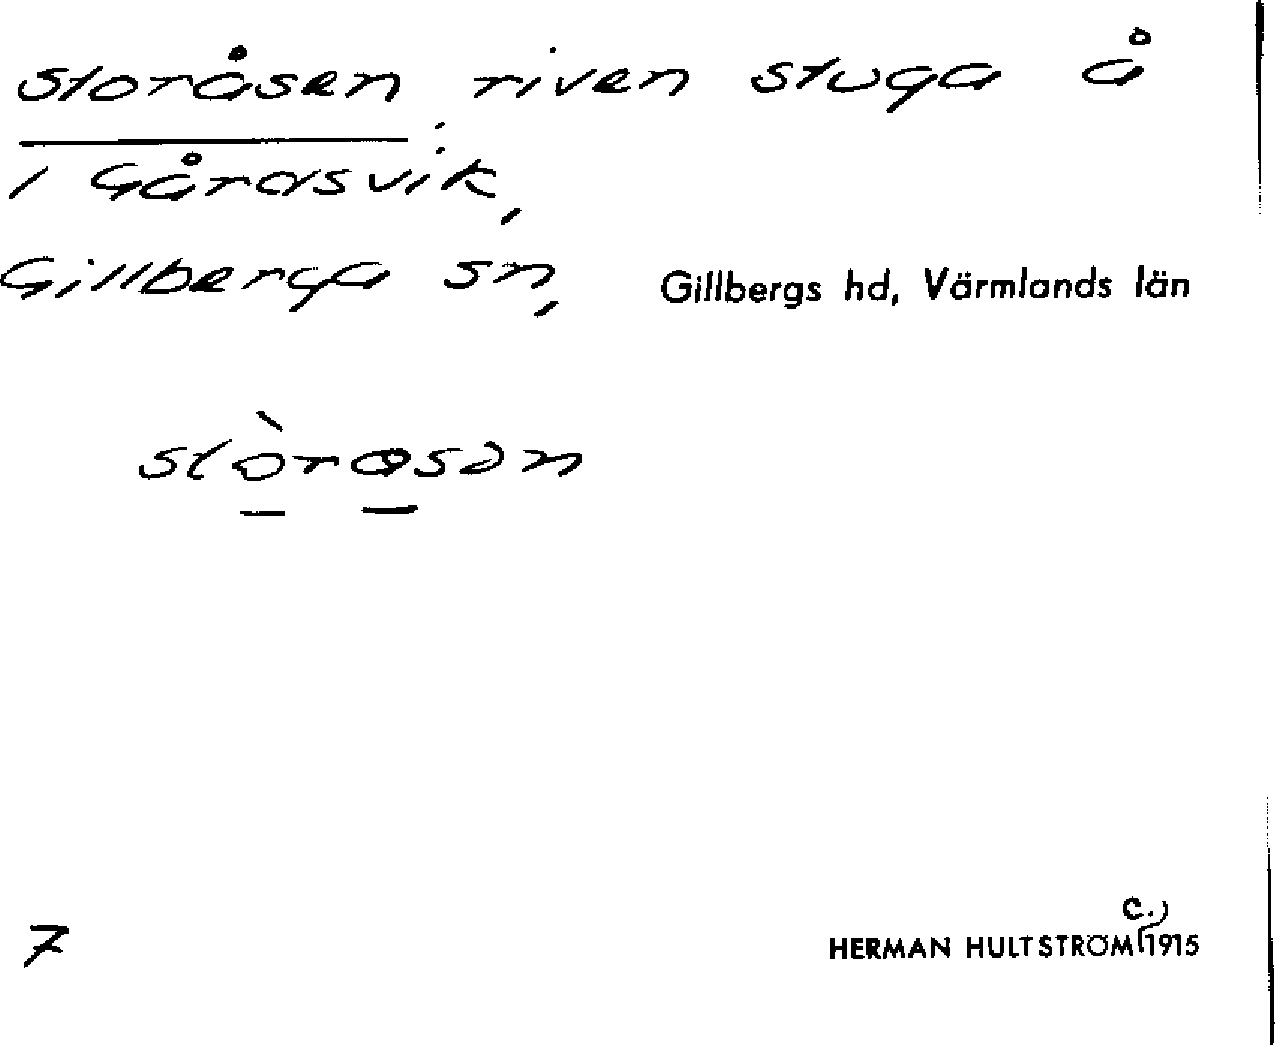 storåsen: riven stuga å
i Gårdsvik,
Gillberga sn, Gillbergs hd, Värmlands län
stòrɷsən
7
c.)
HERMAN HULTSTRÖM 1915